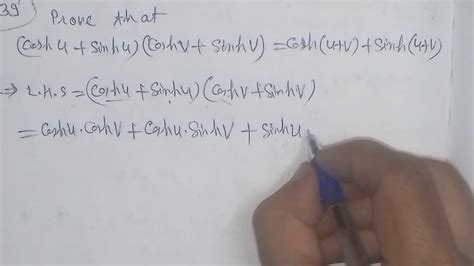 39 Prove that
(Coshu + Sinhu) (CoshV + SinhV) = Cosh(u+V) + Sinh(u+V)
⇒ L.H.S = (Coshu + Sinhu) (CoshV + SinhV)
= Coshu · CoshV + Coshu · SinhV + Sinhu